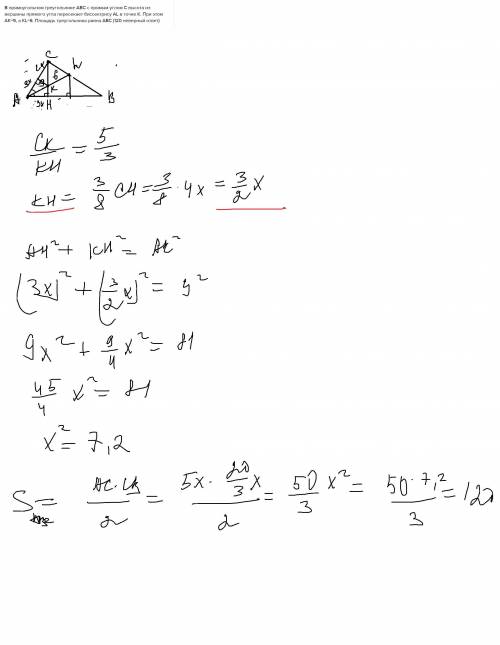 В прямоугольном треугольнике ABC с прямым углом C высота из
вершины прямого угла пересекает биссектрису AL в точке K. При этом
AK=9, а KL=6. Площадь треугольника равна ABC (120 неверный ответ)
C
L
6
K
A
3x
H
B
CK/KH = 5/3
KH = 3/8 CH = 3/8 · 4x = 3/2 x
AH² + KH² = AK²
(3x)² + (3/2 x)² = 9²
9x² + 9/4 x² = 81
45/4 x² = 81
x² = 7,2
S = AC·CB/2 = 5x · 20/3 x/2 = 50/3 x² = 50·7,2/3 = 120